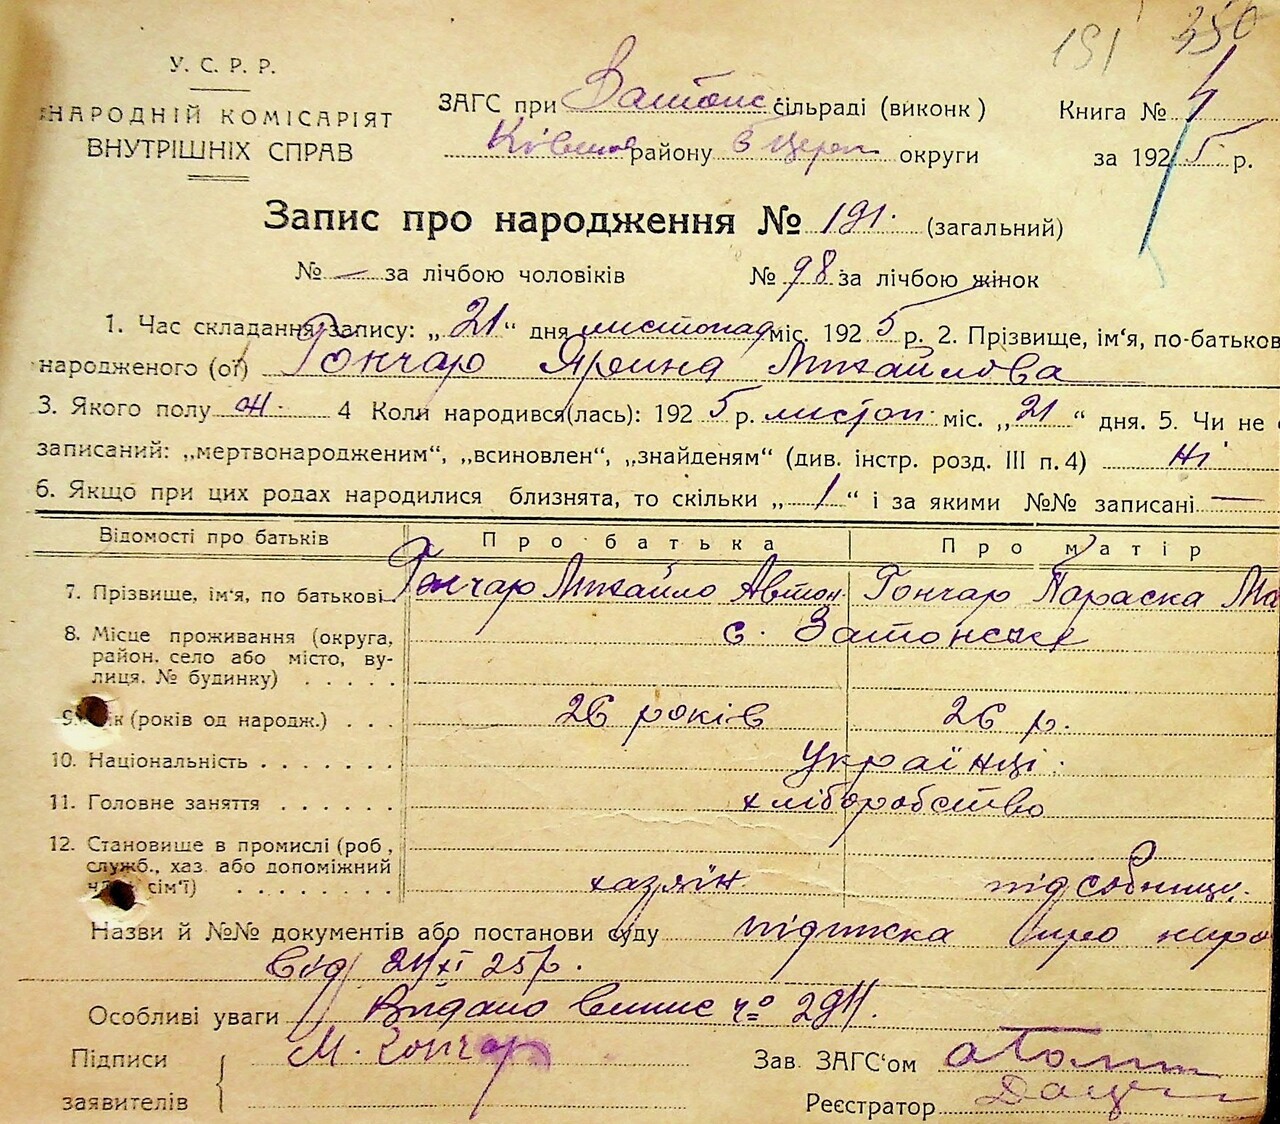 191 350
У. С. Р. Р.
НАРОДНІЙ КОМІСАРІЯТ
ВНУТРІШНІХ СПРАВ
ЗАГС при Затонс сільраді (виконк)
району Б Церк округи
Книга № 4
за 1925 р.
Запис про народження № 191. (загальний)
№ — за лічбою чоловіків № 98 за лічбою жінок
1. Час складання запису: „21“ дня листопад міс. 1925 р. 2. Прізвище, ім‘я, по-батьков
народженого (ої) Гончар Ярина Михайлова
3. Якого полу ж. 4 Коли народився(лась): 1925 р. листоп. міс. „21“ дня. 5. Чи не
записаний: „мертвонародженим“, „всиновлен“, „знайденям“ (див. інстр. розд. III п. 4) ні
6. Якщо при цих родах народилися близнята, то скільки „1“ і за якими №№ записані —
Відомості про батьків Про батька Про матір
7. Прізвище, ім‘я, по батькові Гончар Михайло Автон. Гончар Параска Ма
8. Місце проживання (округа, район, село або місто, ву-
лиця. № будинку) . . . . . с. Затонське
9. Вік (років од народж.) . . . 26 років 26 р.
10. Національність . . . . . . . Українці.
11. Головне заняття . . . . . . хліборобство
12. Становище в промислі (роб,
служб., хаз. або допоміжний
член сім‘ї) . . . . . . . . хазяїн підсобниця.
Назви й №№ документів або постанови суду підписка про наро
від 21/XI 25 р.
Особливі уваги Видано випис № 2911.
Підписи М. Гончар Зав. ЗАГС‘ом
заявителів Реєстратор